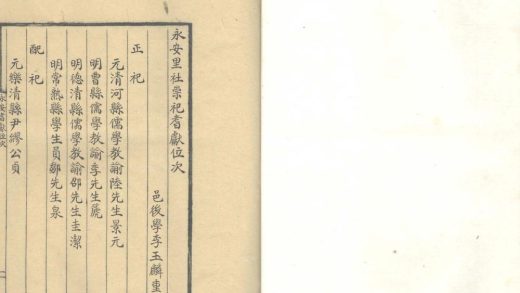 永安里社崇祀耆獻位次
邑後學李玉麟重
正祀
元清河縣儒學教諭陸先生景元
明曹縣儒學教諭李先生
明德清縣儒學教諭邵先生圭潔
明常熟縣學生員鄒先生泉
配祀
元樂清縣尹繆公貞